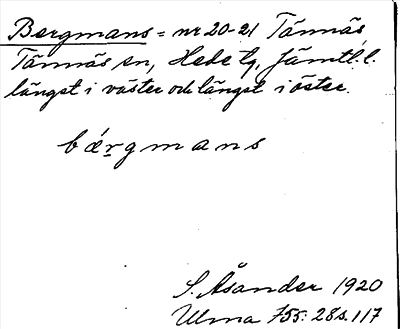 Bergmans = nr 20-21 Tännäs,
Tännäs sn, Hede tg, Jämtl. l.
längst i väster och längst i öster.
bǽrgmans
S. Åsander 1920
Ulma 755: 28 s. 117